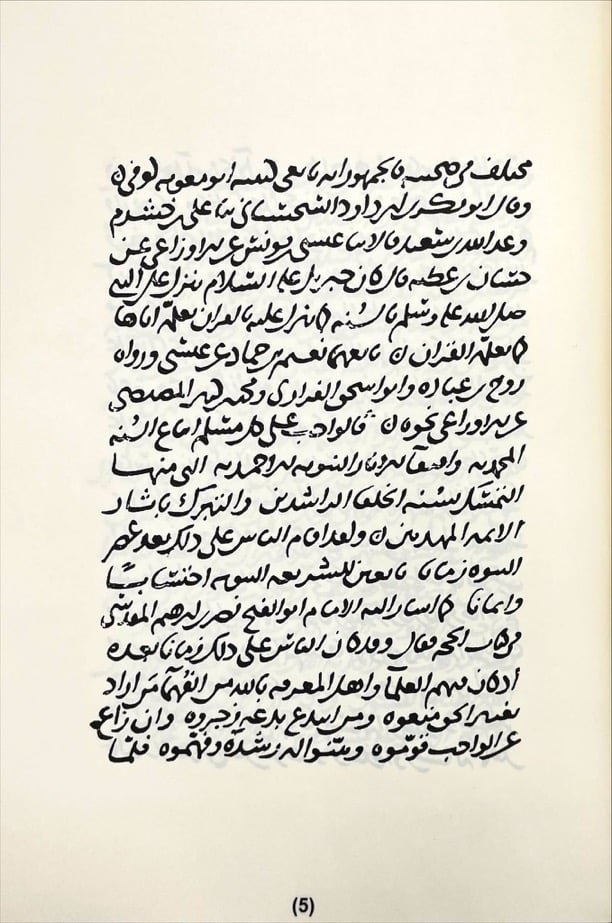 مختلف في صحبته فالجمهور انه تابعي كنيته ابو معوية توفي ن
وقال ابو بكر بن ابي داود السجستاني ثنا علي بن خشرم
وعبد الله بن سعيد قالا ثنا عيسى بن يونس عن الاوزاعي عن
حسان بن عطية قال كان جبريل عليه السلام ينزل على النبي
صلى الله عليه وسلم بالسنة كما ينزل عليه بالقران يعلمه اياها
كما يعلمه القران ن تابعهما نعيم بن حماد عن عيسى ورواه
روح بن عبادة وابو اسحق الفزاري ومحمد بن كثير المصيصي
عن الاوزاعي نحوه ن فالواجب على كل مسلم اتباع السنة
المحمدية واقتفا الاثار النبوية الاحمدية التي منها
التمسك بسنة الخلفا الراشدين والتبرك باثار
الائمة المهديين ن ولقد اقام الناس على ذلك بعد عصر
النبوة زمانا تابعين للشريعة النبوية احتسابًا
وايمانا كما اشار اليه الامام ابو الفتح نصر بن ابرهيم المقدسي
في كتاب الحجة فقال وقد كان الناس على ذلك زمانا بعده
اذ كان فيهم العلمآ واهل المعرفة بالله من الفُهمآ من اراد
تغيير الحق منعوه ومن ابتدع بدعة زجروه وان زاغ
عن الواجب قوّموه وبيّنوا له رشده وفهّموه فلمّا
(5)